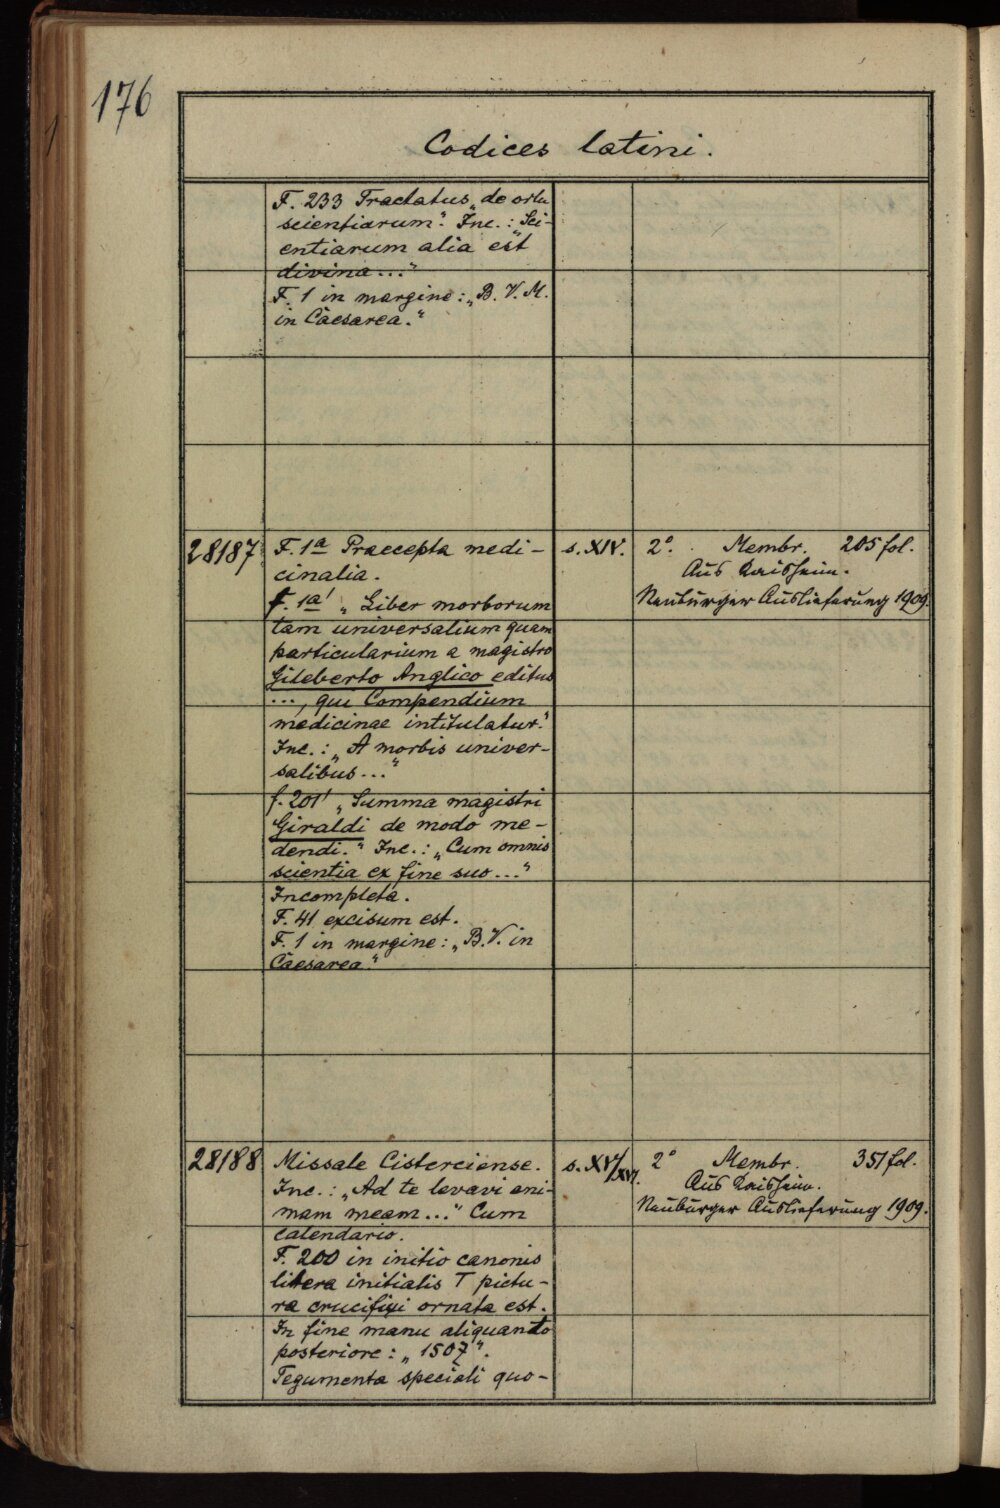 176
Codices latini.
F. 233 Tractatus „de ortu
scientiarum“. Inc.: „Sci-
entiarum alia est
divina...“
F. 1 in margine: „B. V. M.
in Caesarea.“
28187 F. 1a Praecepta medi- s. XIV. 2°. Membr. 205 fol.
cinalia. Aus Kaisheim.
f. 1a' „Liber morborum Neuburger Auslieferung 1909.
tam universalium quam
particularium a magistro
Gileberto Anglico editus
..., qui Compendium
medicinae intitulatur.“
Inc.: „A morbis univer-
salibus...“
f. 201' „Summa magistri
Giraldi de modo me-
dendi.“ Inc.: „Cum omnis
scientia ex fine suo...“
Incompleta.
F. 41 excisum est.
F. 1 in margine: „B. V. in
Caesarea“
28188 Missale Cisterciense. s. XV/XVI. 2° Membr. 351 fol.
Inc.: „Ad te levavi ani- Aus Kaisheim.
mam meam...“ Cum Neuburger Auslieferung 1909.
calendario.
F. 200 in initio canonis
litera initialis T pictu-
ra crucifixi ornata est.
In fine manu aliquanto
posteriore: „1507“.
Tegumenta speciali quo-